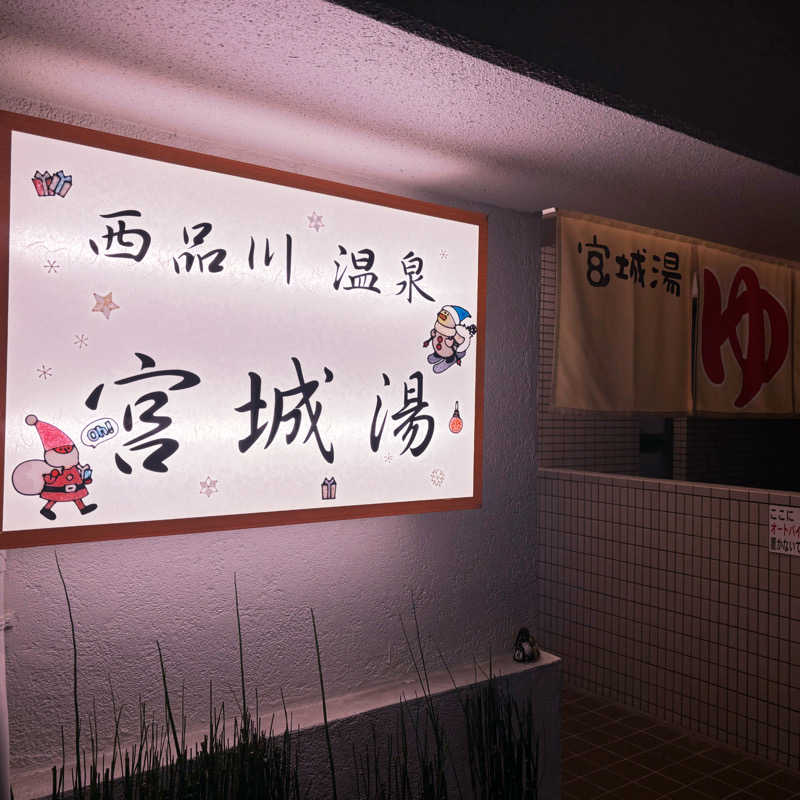 西品川温泉
宮城湯
Oh!
宮城湯
ゆ
ここに
オートバイ
置かないで